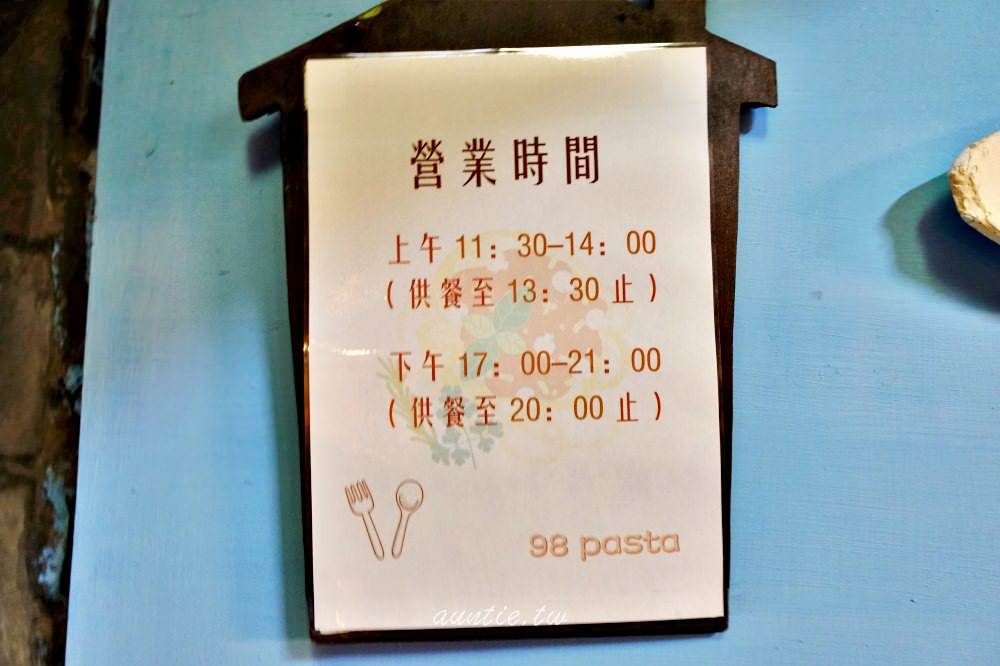 營業時間
上午 11：30–14：00
(供餐至 13：30 止)
下午 17：00–21：00
(供餐至 20：00 止)
98 pasta
auntie.tw